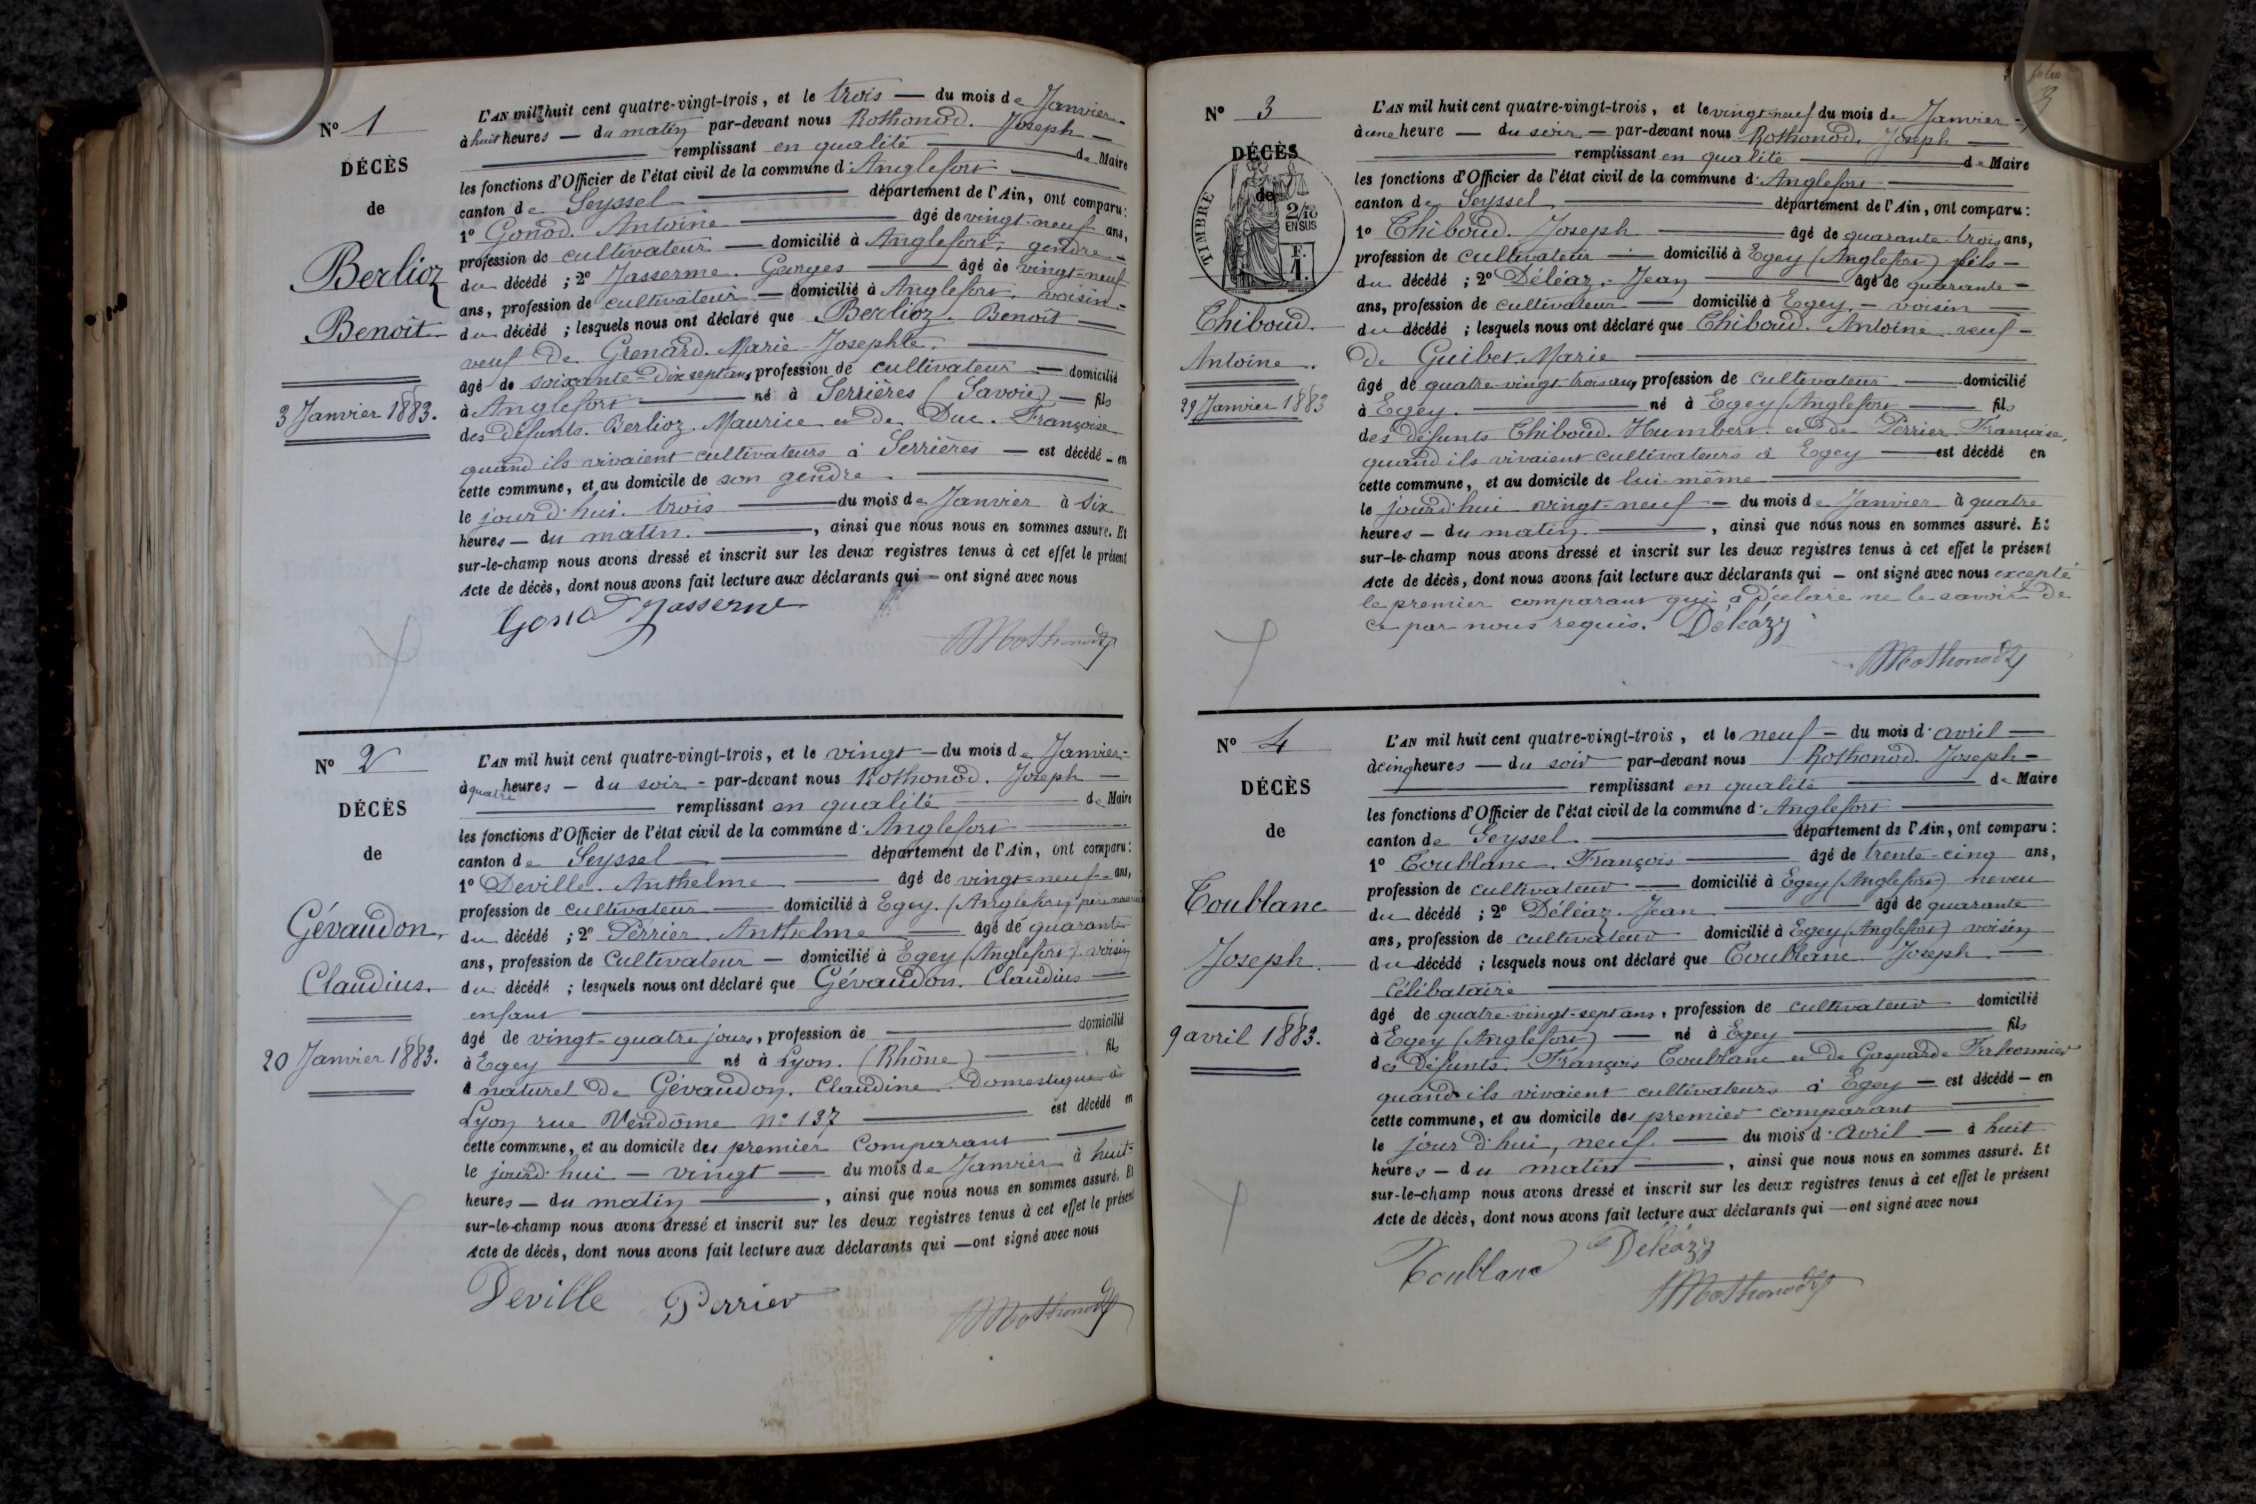 N° 1
DÉCÈS
de
Berlioz
Benoît
3 Janvier 1883.
L'AN mil huit cent quatre-vingt-trois, et le trois — du mois de Janvier -
à huit heures — du matin par-devant nous Rothonod. Joseph —
remplissant en qualité — de Maire
les fonctions d'Officier de l'état civil de la commune d'Anglefort
canton de Seyssel — département de l'Ain, ont comparu :
1° Gonod. Antoine — âgé de vingt-neuf ans,
profession de cultivateur — domicilié à Anglefort, gendre -
du décédé ; 2° Jasserme. Georges — âgé de vingt-neuf
ans, profession de cultivateur — domicilié à Anglefort, voisin -
du décédé ; lesquels nous ont déclaré que Berlioz. Benoît —
veuf de Grenard. Marie-Josephte. —
âgé de soixante-dix sept ans, profession de cultivateur — domicilié
à Anglefort — né à Serrières (Savoie) — fils
des défunts. Berlioz. Maurice et de Duc. Françoise
quand ils vivaient cultivateurs à Serrières — est décédé - en
cette commune, et au domicile de son gendre —
le jourd'hui. trois — du mois de Janvier à six
heures — du matin. —, ainsi que nous nous en sommes assuré. Et
sur-le-champ nous avons dressé et inscrit sur les deux registres tenus à cet effet le présent
Acte de décès, dont nous avons fait lecture aux déclarants qui — ont signé avec nous
Gonod Jasserme
Rothonod
N° 2
DÉCÈS
de
Gévaudon,
Claudius.
20 Janvier 1883.
L'AN mil huit cent quatre-vingt-trois, et le vingt — du mois de Janvier -
à quatre heures — du soir - par-devant nous Rothonod. Joseph —
remplissant en qualité — de Maire
les fonctions d'Officier de l'état civil de la commune d'Anglefort
canton de Seyssel — département de l'Ain, ont comparu :
1° Deville. Anthelme — âgé de vingt-neuf - ans,
profession de cultivateur — domicilié à Egey. (Anglefort) père
du décédé ; 2° Perrier. Anthelme — âgé de quarante
ans, profession de Cultivateur — domicilié à Egey (Anglefort) voisin
du décédé ; lesquels nous ont déclaré que Gévaudon. Claudius —
enfant —
âgé de vingt-quatre jours, profession de — domicilié
à Egey — né à Lyon. (Rhône) — fils
naturel de Gévaudon. Claudine. Domestique à
Lyon rue Vendôme N° 137 — est décédé en
cette commune, et au domicile des premier Comparant —
le jourd'hui — vingt — du mois de Janvier à huit -
heures — du matin —, ainsi que nous nous en sommes assuré. Et
sur-le-champ nous avons dressé et inscrit sur les deux registres tenus à cet effet le présent
Acte de décès, dont nous avons fait lecture aux déclarants qui — ont signé avec nous
Deville Perrier
Rothonod
folio
3
N° 3
DÉCÈS
de
TIMBRE
2/10
EN SUS
F.
1.
Thiboud.
Antoine.
29 Janvier 1883
L'AN mil huit cent quatre-vingt-trois, et le vingt-neuf du mois de Janvier -
à une heure — du soir — par-devant nous Rothonod. Joseph —
remplissant en qualité — de Maire
les fonctions d'Officier de l'état civil de la commune d'Anglefort —
canton de Seyssel — département de l'Ain, ont comparu :
1° Thiboud. Joseph — âgé de quarante-trois ans,
profession de cultivateur — domicilié à Egey (Anglefort) fils -
du décédé ; 2° Déléaz. Jean — âgé de quarante -
ans, profession de cultivateur — domicilié à Egey. — voisin —
du décédé ; lesquels nous ont déclaré que Thiboud. Antoine veuf -
de Guibet. Marie —
âgé de quatre-vingt-trois ans, profession de cultivateur — domicilié
à Egey. — né à Egey (Anglefort — fils
des défunts Thiboud. Humbert. et de Perrier. Françoise,
quand ils vivaient cultivateurs à Egey — est décédé en
cette commune, et au domicile de lui-même —
le jourd'hui vingt-neuf — du mois de Janvier à quatre
heures — du matin. —, ainsi que nous nous en sommes assuré. Et
sur-le-champ nous avons dressé et inscrit sur les deux registres tenus à cet effet le présent
Acte de décès, dont nous avons fait lecture aux déclarants qui — ont signé avec nous excepté
le premier comparant qui a déclaré ne le savoir de
ce par nous requis. Déléaz
Rothonod
N° 4
DÉCÈS
de
Toublanc
Joseph.
9 avril 1883.
L'AN mil huit cent quatre-vingt-trois, et le neuf — du mois d'avril —
à cinq heures — du soir par-devant nous Rothonod. Joseph —
remplissant en qualité — de Maire
les fonctions d'Officier de l'état civil de la commune d'Anglefort —
canton de Seyssel. — département de l'Ain, ont comparu :
1° Toublanc. François — âgé de trente-cinq ans,
profession de cultivateur — domicilié à Egey (Anglefort) neveu
du décédé ; 2° Déléaz. Jean — âgé de quarante
ans, profession de cultivateur domicilié à Egey (Anglefort) voisin
du décédé ; lesquels nous ont déclaré que Toublanc. Joseph. —
Célibataire —
âgé de quatre-vingt-sept ans, profession de cultivateur domicilié
à Egey (Anglefort) — né à Egey — fils
des défunts. François Toublanc et de Gasparde
quand ils vivaient cultivateurs à Egey — est décédé — en
cette commune, et au domicile des premier comparant —
le jourd'hui, neuf. — du mois d'avril — à huit
heures — du matin —, ainsi que nous nous en sommes assuré. Et
sur-le-champ nous avons dressé et inscrit sur les deux registres tenus à cet effet le présent
Acte de décès, dont nous avons fait lecture aux déclarants qui — ont signé avec nous
Toublanc Déléaz
Rothonod